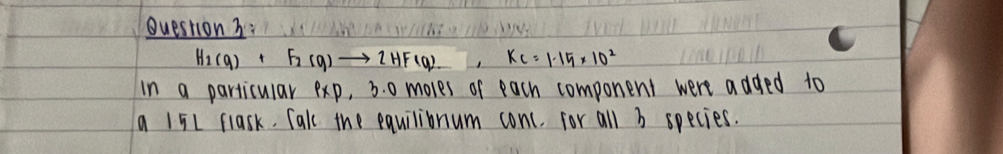 Question 3:
H₂(g) + F₂(g) → 2HF(g) , Kc = 1.15 × 10²
In a particular exp, 3.0 moles of each component were added to
a 15L flask. Calc the equilibrium conc. for all 3 species.